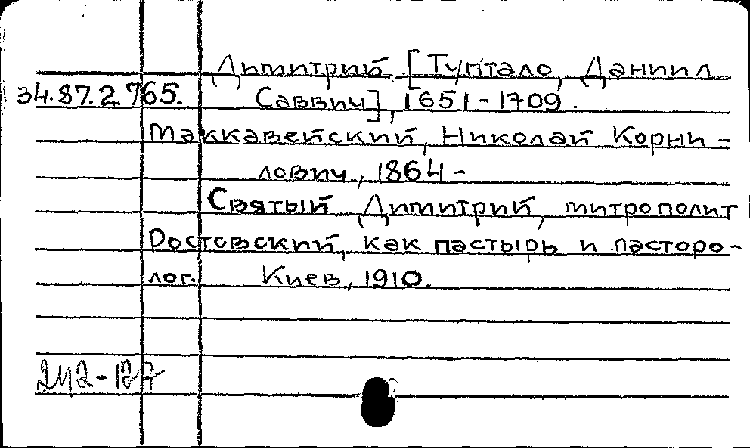 Димитрий [Туптало, Даниил
34.87.2765. Саввич], 1651-1709.
Маккавейский, Николай Корни-
лович, 1864-
Святый Димитрий, митрополит
Ростовский, как пастырь и пасторо-
лог. Киев, 1910.
242-127